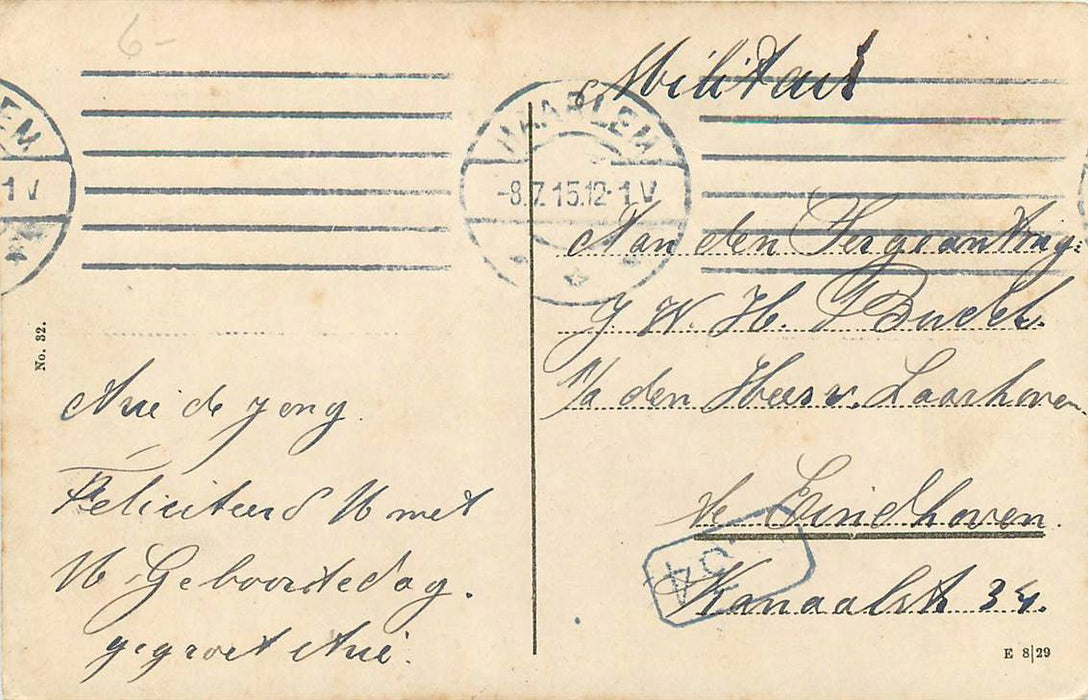 6-
Militair
HAARLEM
-8.7.15.12-1.V
EM
1 V
Aan den Sergeant
J. W. H.
p/a den Heer v. Laarhoven
te Eindhoven
Kanaalst 34.
No. 32.
Anie de Jong
Feliciteerd U met
U Geboortedag.
gegroet Anie.
E 8|29